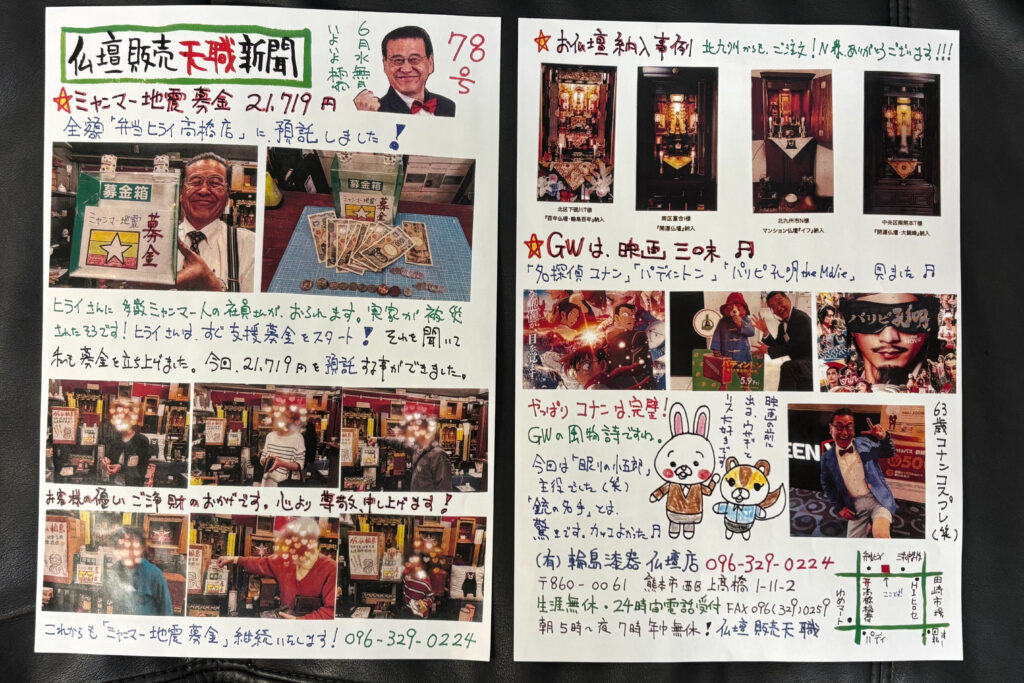 仏壇販売天職新聞
6月水無月
いよいよ
78号
ミャンマー地震募金 21,719円
全額「弁当ヒライ高橋店」に預託しました!
募金箱
ミャンマー地震
募金
募金箱
募金
ヒライさんに多数ミャンマー人の社員さんが、おられます。実家が被災
されたそうです!ヒライさんは、すぐ支援募金をスタート!それを聞いて
私も募金を立ち上げました。今回、21,719円を預託する事ができました。
お客様の優しいご浄財のおかげです。心より尊敬申し上げます!
これからも「ミャンマー地震募金」継続いたします!096-329-0224
お仏壇納入事例 北九州からも、ご注文!N様ありがとうございます!!!
北区下硯川T様
『百年仏壇・輪島百年』納入
南区富合I様
『開運仏壇』納入
北九州市N様
マンション仏壇『イフ』納入
中央区南熊本T様
『開運仏壇・大観峰』納入
GWは、映画三昧♬
「名探偵コナン」「パディントン」「パリピ孔明the Movie」見ました♬
パディントン
5.9
パリピ孔明
やっぱりコナンは、完璧!
GWの風物詩ですね。
今回は「眠りの小五郎」
主役でした(笑)
「銃の名手」とは、
驚きです。カッコよかった♬
映画の前に
出る、ウサギと
リス大好きです
EEN
50
63歳コナンコスプレ(笑)
(有)輪島漆器仏壇店 096-329-0224
〒860-0061 熊本市西区上高橋1-11-2
生涯無休・24時間電話受付 FAX 096(329)0259
朝5時~夜7時年中無休!仏壇販売天職
ここです!
ゆめマート
田崎市場
パディ